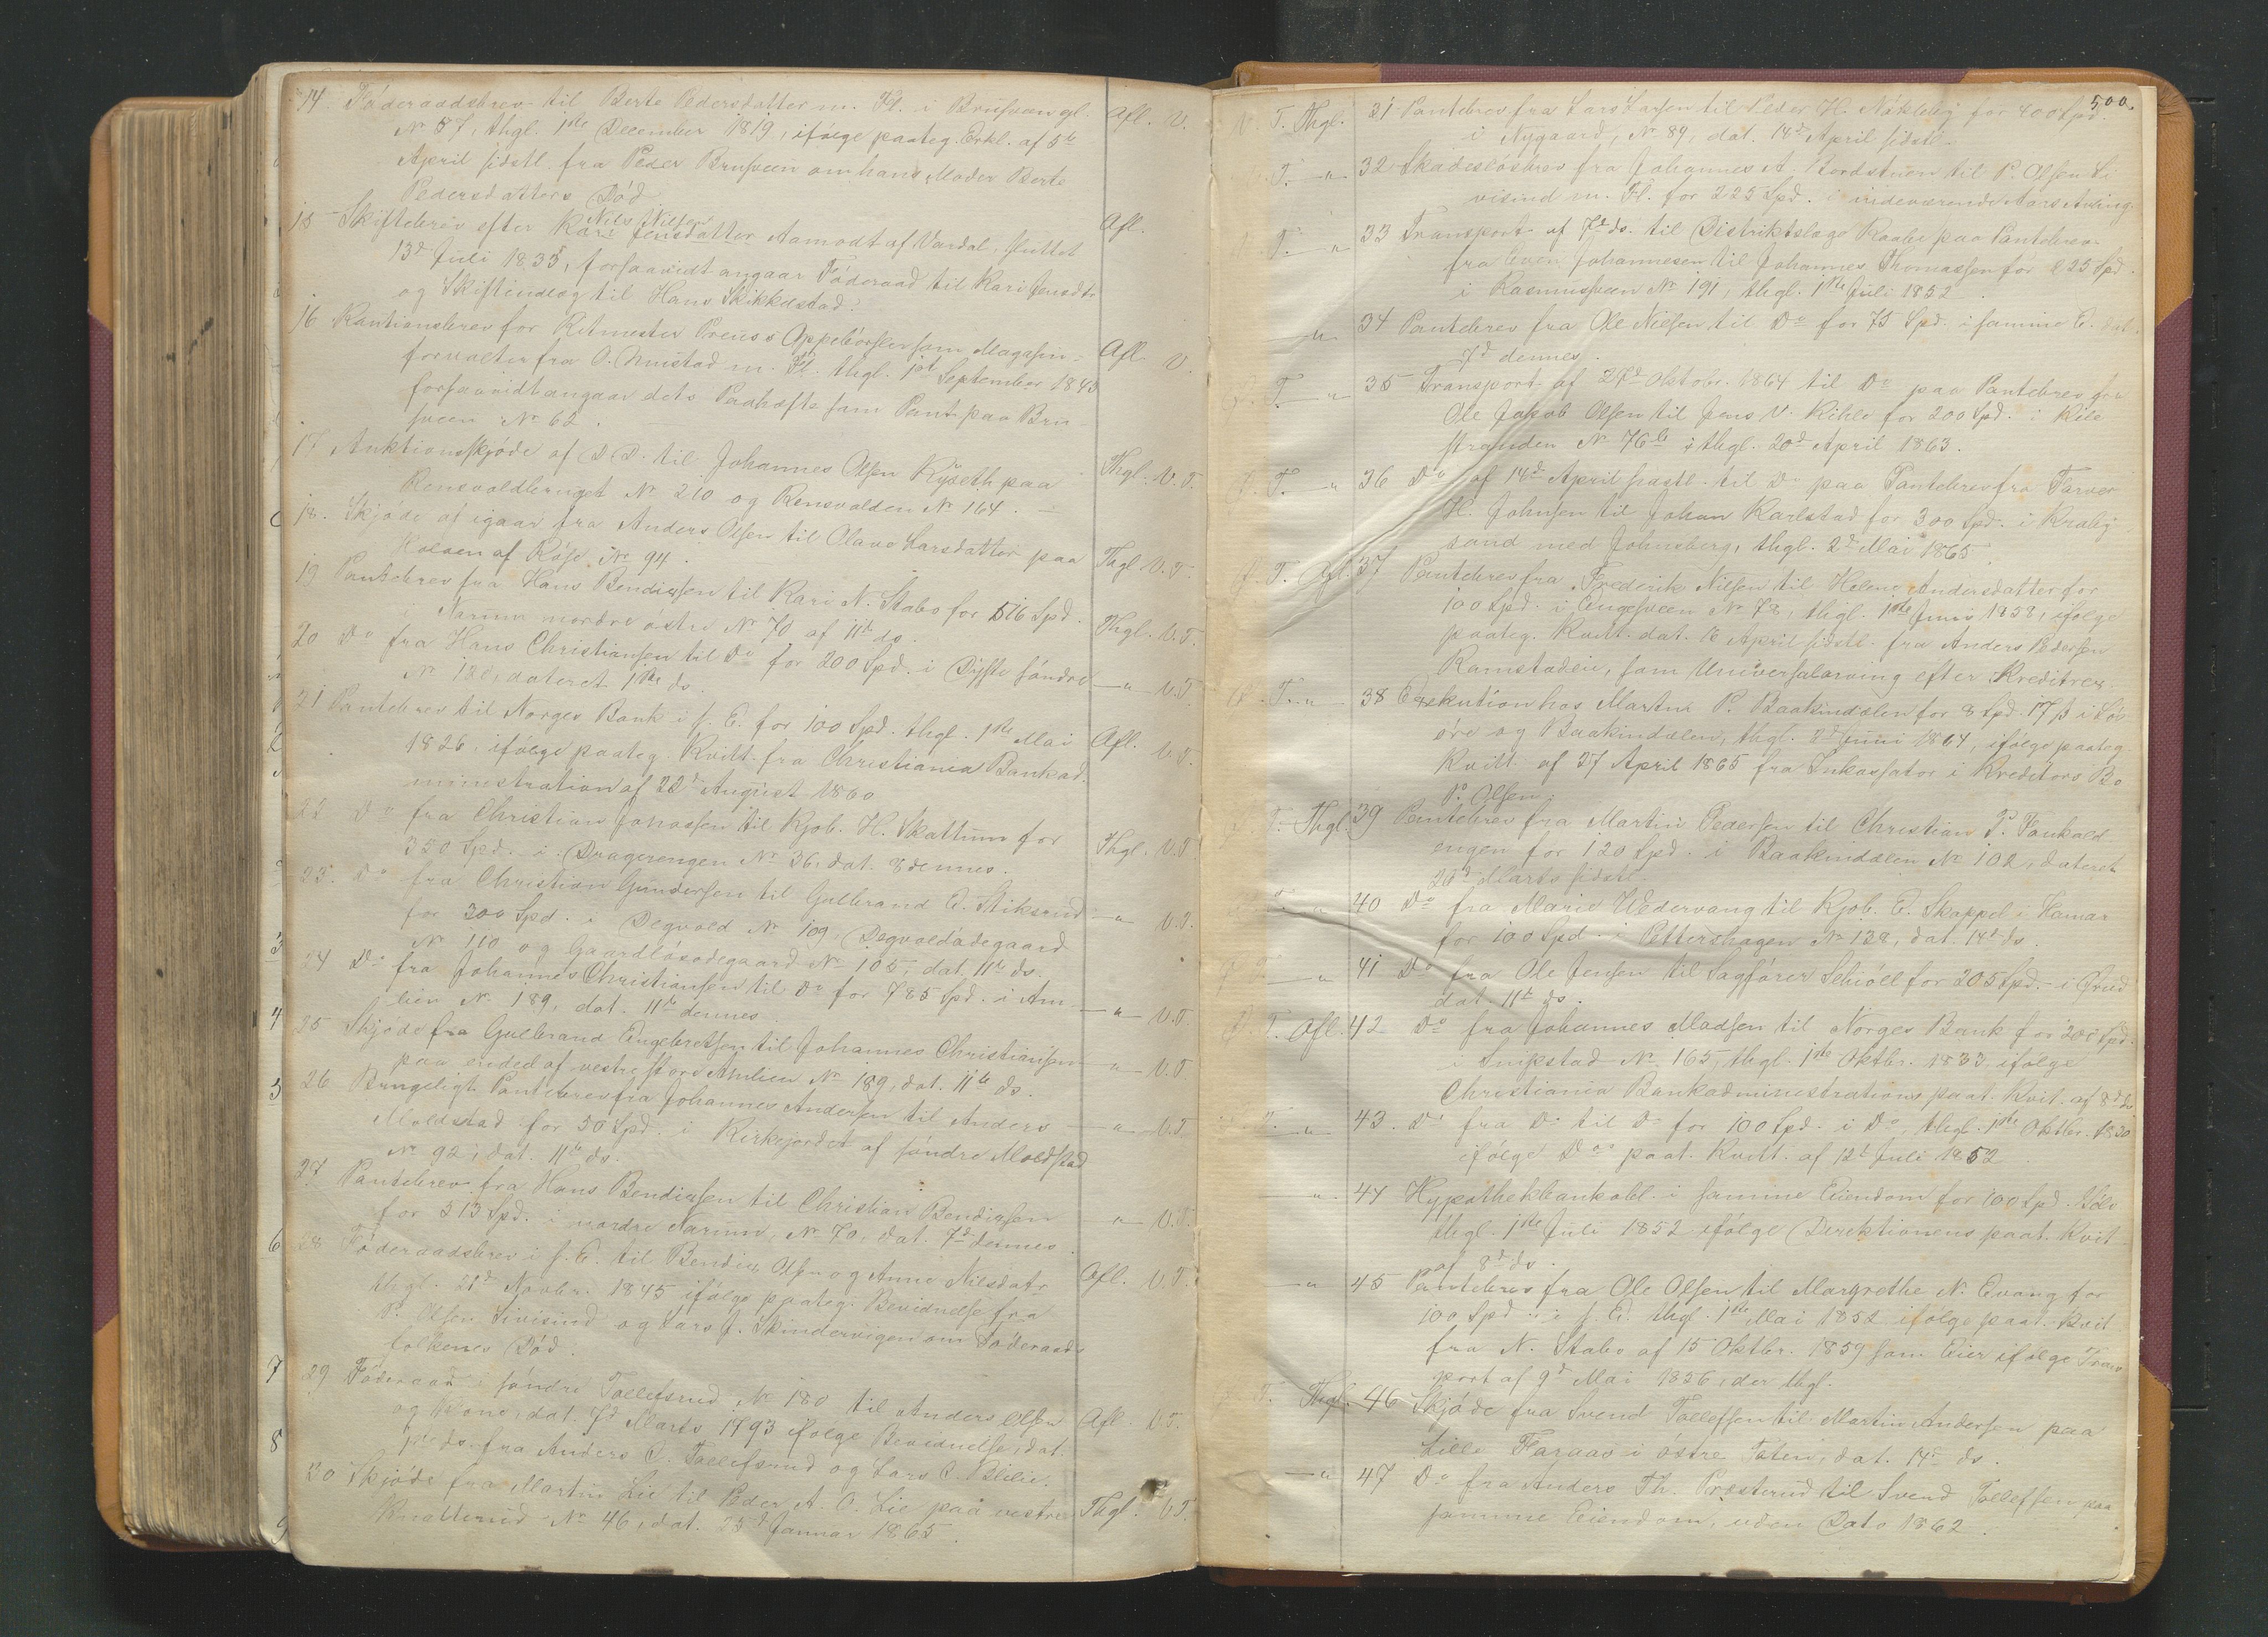 14 Föderaadsbrev til Berte Pedersdatter m. Fl. i Brusveen gl. Afl. V.
No 57, thgl. 1ste December 1819, ifölge paateg. Erkl. af 5te
April sidstl. fra Peder Brusveen om hans Moder Berte
Pedersdatters Död
15 Skiftebrev efter Nils Nilsen Aamodt af Vardal, sluttet Afl.
Kari Jensdatter
13de Juli 1835, forsaavidt angaar Föderaad til Kari Jensdtr
og Skiftindlæg til Hans Skikkelstad.
16 Kautionsbrev for Ritmester Preuss Oppebörsler som Magasin- Afl. V.
forvalter fra O. Mustad m. Fl. thgl. 1ste September 1843
forsaavidt angaar dets Paahæfte som Pant paa Bru-
sveen No 62.
17 Auktionsskjöde af D. D. til Johannes Olsen Kyseth paa Thgl. V. T.
Rensvoldbruget No 210 og Rensvolden No 164.
18. Skjöde af igaar fra Anders Olsen til Olave Larsdatter paa Thgl V. T.
Kolven af Röise No 94.
19 Pantebrev fra Hans Bendixsen til Kari N. Stabo for 516 Spd. Thgl. V. T.
i Narum nordre östre No 70 af 11te ds.
20 Do fra Hans Christiansen til Do for 200 Spd. i Dyste söndre —"— V. T.
No 182, dateret 1ste ds.
21 Pantebrev til Norges Bank i s. E. for 100 Spd. thgl. 1ste Mai Afl. V. T.
1826, ifölge paateg. Kvitt. fra Christiania Bankad-
ministration af 22de August 1860
22 Do fra Christian Johassen til Kjöb. H. Skattum for Thgl. V. T.
350 Spd. i Dragerengen No 36, dat. 8 dennes.
23. Do fra Christian Gundersen til Gulbrand E. Stiksrud —"— V. T.
for 300 Spd. i Degvold No 109, Degvoldödegaard
No 110 og Gaardlösödegaard No 105, dat. 11te ds.
24 Do fra Johannes Christiansen til Do for 785 Spd. i Am- —"— V. T.
lien No 189, dat. 11te dennes.
25 Skjöde fra Gulbrand Engebretsen til Johannes Christiansen —"— V. T.
paa endeel af vestre store Amlien No 189, dat. 11te ds.
26 Brugeligt Pantebrev fra Johannes Andersen til Anders —"— V. T.
Moldstad for 50 Spd. i Kirkejordet af söndre Moldstad
No 92, dat. 11te ds.
27 Pantebrev fra Hans Bendixsen til Christian Bendixsen —"— V. T.
for 513 Spd. i nordre Narum, No 70, dat. 7de dennes.
28 Föderaadsbrev i s. E. til Bendix Olsen og Anne Nilsdatr Afl. V. T.
thgl. 21de Novbr. 1845 ifölge paateg. Bevidnelse fra
P. Olsen Sivisind og Lars J. Skindervigen om Föderaads-
folkenes Död.
29 Föderaad i söndre Tollefsrud No 180 til Anders Olsen Afl. V. T.
og Kone, dat. 7de Marts 1793 ifölge Bevidnelse, dat.
1ste ds. fra Anders C. Tollefsrud og Lars C. Blilie.
30 Skjöde fra Martin Lie til Peder A. O. Lie paa vestre Thgl. V. T.
Knatterud No 46, dat. 25de Januar 1865.
500.
V. T. Thgl. 31 Pantebrev fra Lars Larsen til Peder H. Nökleby for 400 Spd.
i Nygaard, No 89, dat. 18de April sidstl.
T. —"— 32 Skadeslösbrev fra Johannes A. Nordstuen til P. Olsen Si-
visind m. Fl. for 225 Spd. i indeværende Aars Avling.
T. —"— 33 Transport af 7de ds. til Distriktslæge Raabe paa Pantebrev
fra Even Johannesen til Johannes Thomassen for 225 Spd.
i Rasmusveen No 191, thgl. 1ste Juli 1852.
—"— 34 Pantebrev fra Ole Nielsen til Do for 75 Spd. i samme E. dat.
7de dennes.
T. —"— 35 Transport af 24de Oktobr. 1864 til Do paa Pantebrev fra
Ole Jakob Olsen til Jens V. Kihle for 200 Spd. i Kile-
stranden No 76 thgl. 20de April 1863.
T. —"— 36 Do af 14de April sastl. til Do paa Pantebrev fra Tarver
H. Johnsen til Johan Karlstad for 300 Spd. i Kraby-
sand med Johnsberg, thgl. 2de Mai 1865.
T. Afl. 37 Pantebrev fra Frederik Nilsen til Helene Andersdatter for
100 Spd. i Engesveen No 78, thgl. 1ste Juni 1858, ifölge
paateg. Kvitt. dat. 16 April sidstl. fra Anders Pedersen
Ramstadeie, som Universalarving efter Kreditrex.
T. —"— 38 Exekution hos Martin P. Baakindalen for 8 Spd. 17 β i Lös-
öre og Baakindalen, thgl. Juni 1864, ifölge paateg.
Kvitt. af 27 April 1865 fra Inkassator i Kreditors Bo
P. Olsen.
T. Thgl. 39 Pantebrev fra Martin Pedersen til Christian P. Faukald-
engen for 120 Spd. i Baakindalen No 102, dateret
20de Marts sidstl.
T. —"— 40 Do fra Marie Wedervang til Kjöb. E. Skappel i Hamar
for 100 Spd. i Pettershagen No 138, dat. 14de ds.
—"— 41 Do fra Ole Jensen til Sagförer Schiöll for 205 Spd. i Grud
dat. 11te ds.
T. Afl. 42 Do fra Johannes Madsen til Norges Bank for 200 Spd.
i Snipstad No 165, thgl. 1ste Oktbr. 1833, ifölge
Christiania Bankadministrations paat. Kvit. af 8de ds
—"— 43. Do fra Do til Do for 100 Spd. i Do, thgl. 1ste Oktbr. 1830
ifölge Dos paat. Kvitt. af 12te Juli 1852
—"— 44 Hypothekbankobl. i samme Eiendom for 100 Spd. Sölv
thgl. 1ste Juli 1852 ifölge Direktionens paat. Kvit
af 8de ds.
—"— 45 Pantebrev fra Ole Olsen til Margrethe N. Evang for
100 Spd. i s. E. thgl. 1ste Mai 1852 ifölge paat. Kvit
fra N. Stabo af 15 Oktbr. 1859 som Eier ifölge Trans-
port af 9de Mai 1856, der thgl.
T. Thgl. 46 Skjöde fra Svend Tollefsen til Martin Andersen paa
Lille Farvas i östre Toten, dat. 14de ds.
—"— 47 Do fra Anders Th. Præsterud til Svend Tollefsen paa
samme Eiendom, uden Dato 1862.